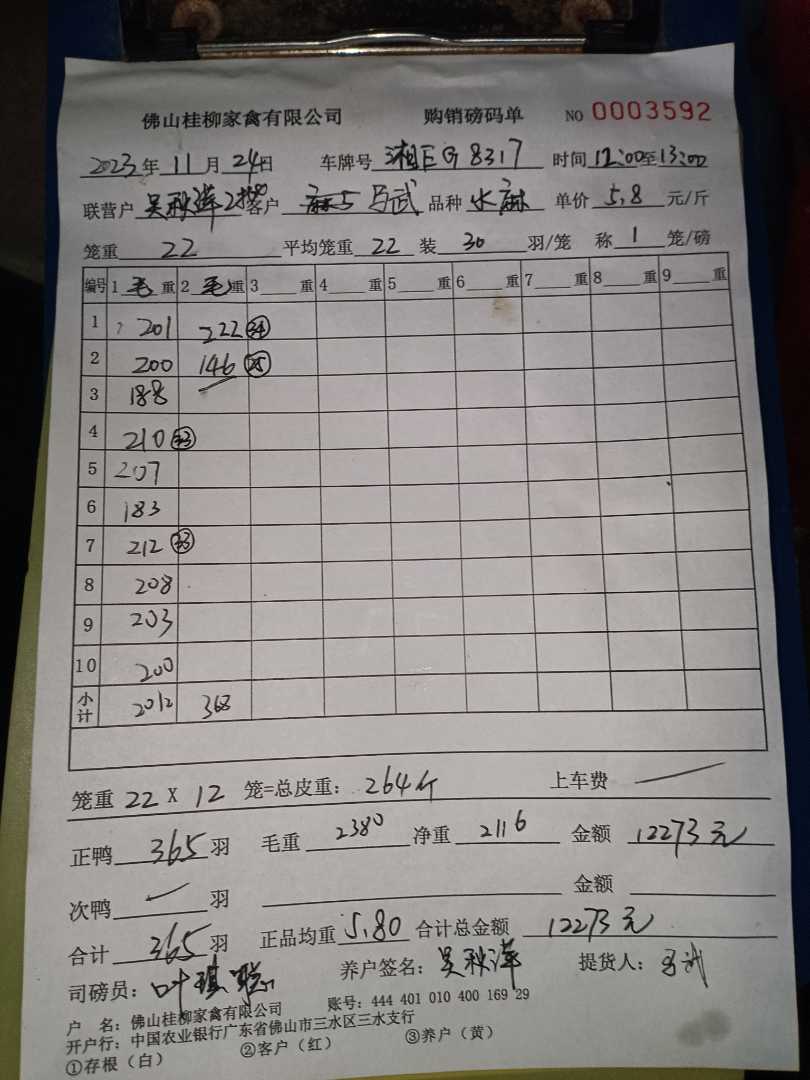 佛山桂柳家禽有限公司 购销磅码单 NO 0003592
2023年 11月 24日 车牌号 湘E G 8317 时间 12:00至13:00
联营户 吴秋洋2批 客户 马武 品种 水麻 单价 5.8 元/斤
笼重 22 平均笼重 22 装 30 羽/笼 称 1 笼/磅
编号 1 毛 重 2 毛 重 3 重 4 重 5 重 6 重 7 重 8 重 9 重
1 201 222 34
2 200 146 25
3 188
4 210 33
5 207
6 183
7 212 33
8 208
9 203
10 200
小计 2012 368
笼重 22 X 12 笼=总皮重: 264斤 上车费
正鸭 365 羽 毛重 2380 净重 2116 金额 12273元
次鸭 羽 金额
合计 365 羽 正品均重 5.80 合计总金额 12273元
司磅员: 叶琪聪 养户签名: 吴秋洋 提货人: 马武
户 名: 佛山桂柳家禽有限公司 账号: 444 401 010 400 169 29
开户行: 中国农业银行广东省佛山市三水区三水支行
①存根(白) ②客户(红) ③养户(黄)